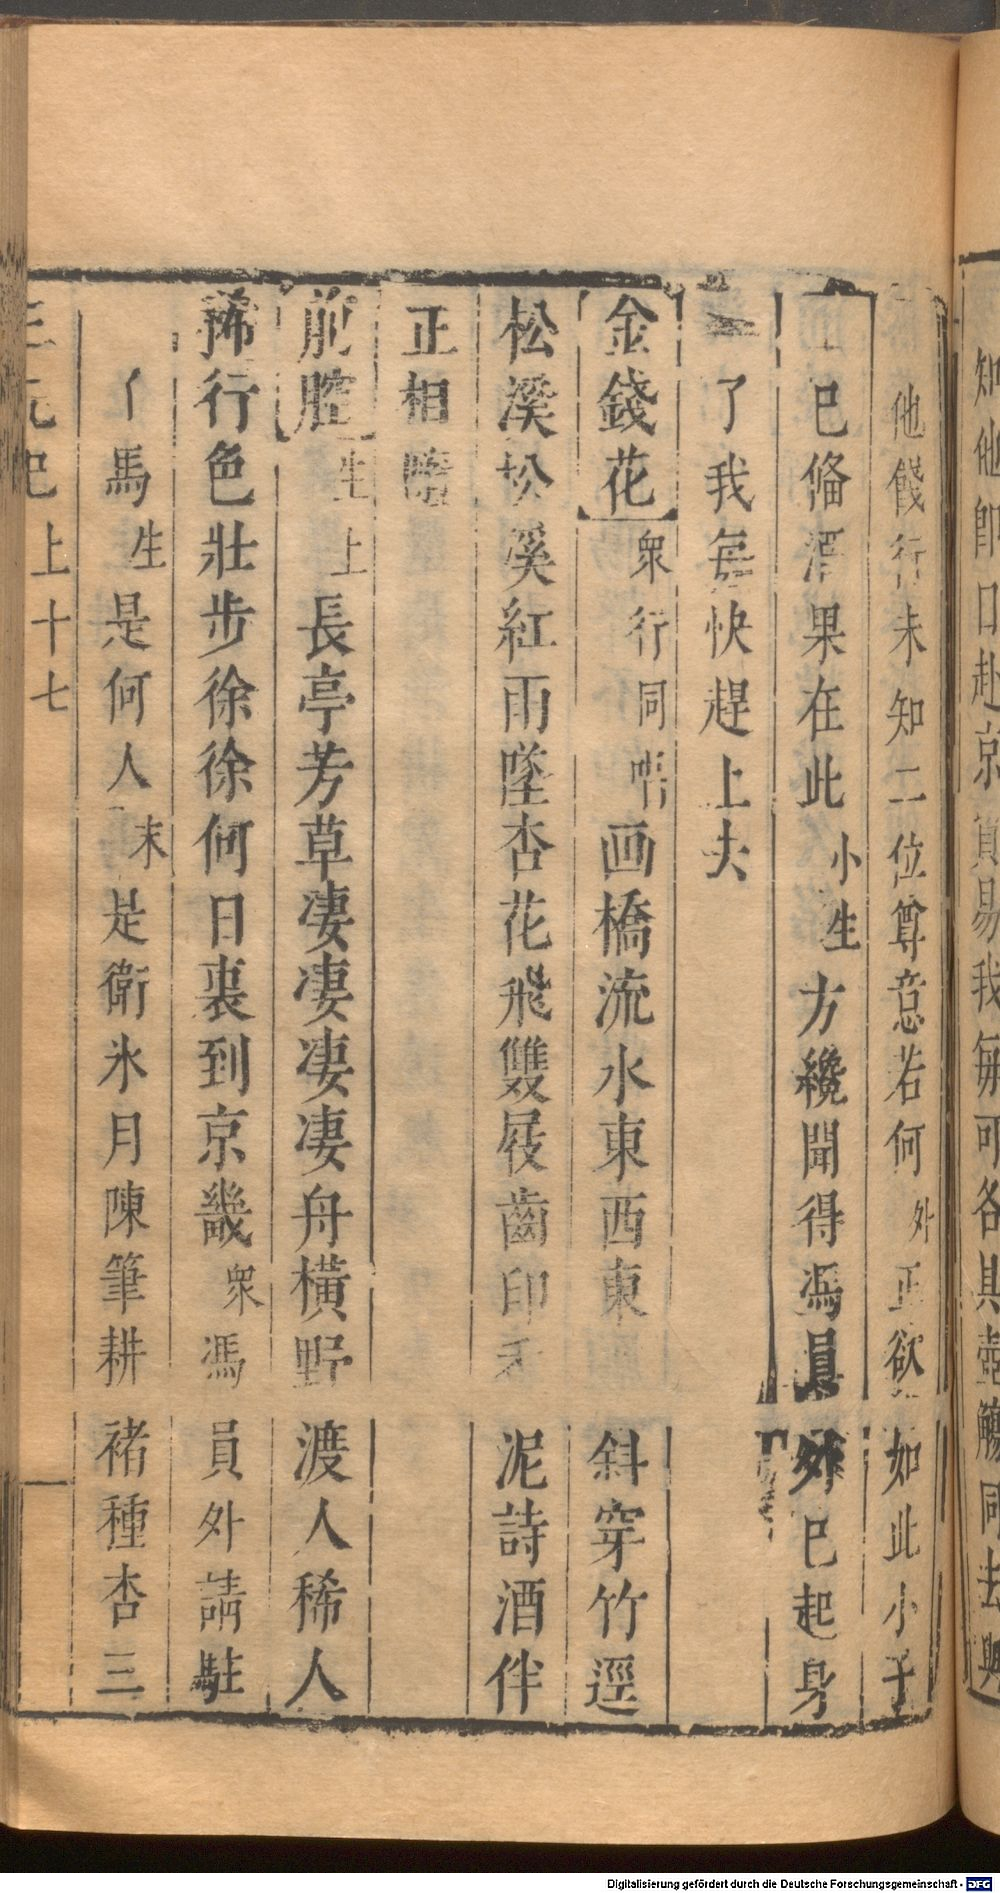 知他卽日赴京箕易我每可各具壺觴同去與
他餞行未知二位尊意若何外正欲如此小于
已俻酒果在此小生方纔聞得馮員外已起身
了我每快趕上去
金錢花衆行同唱画橋流水東西東斜穿竹逕
松溪松溪紅雨墜杏花飛雙屐齒印泥詩酒伴
正相隨
前腔生上長亭芳草凄凄凄凄舟橫野渡人稀人
稀行色壯步徐徐何日裏到京畿衆馮員外請駐
馬生是何人末是衛氷月陳筆耕禇種杏三
三元巳上十七
Digitalisierung gefördert durch die Deutsche Forschungsgemeinschaft - DFG